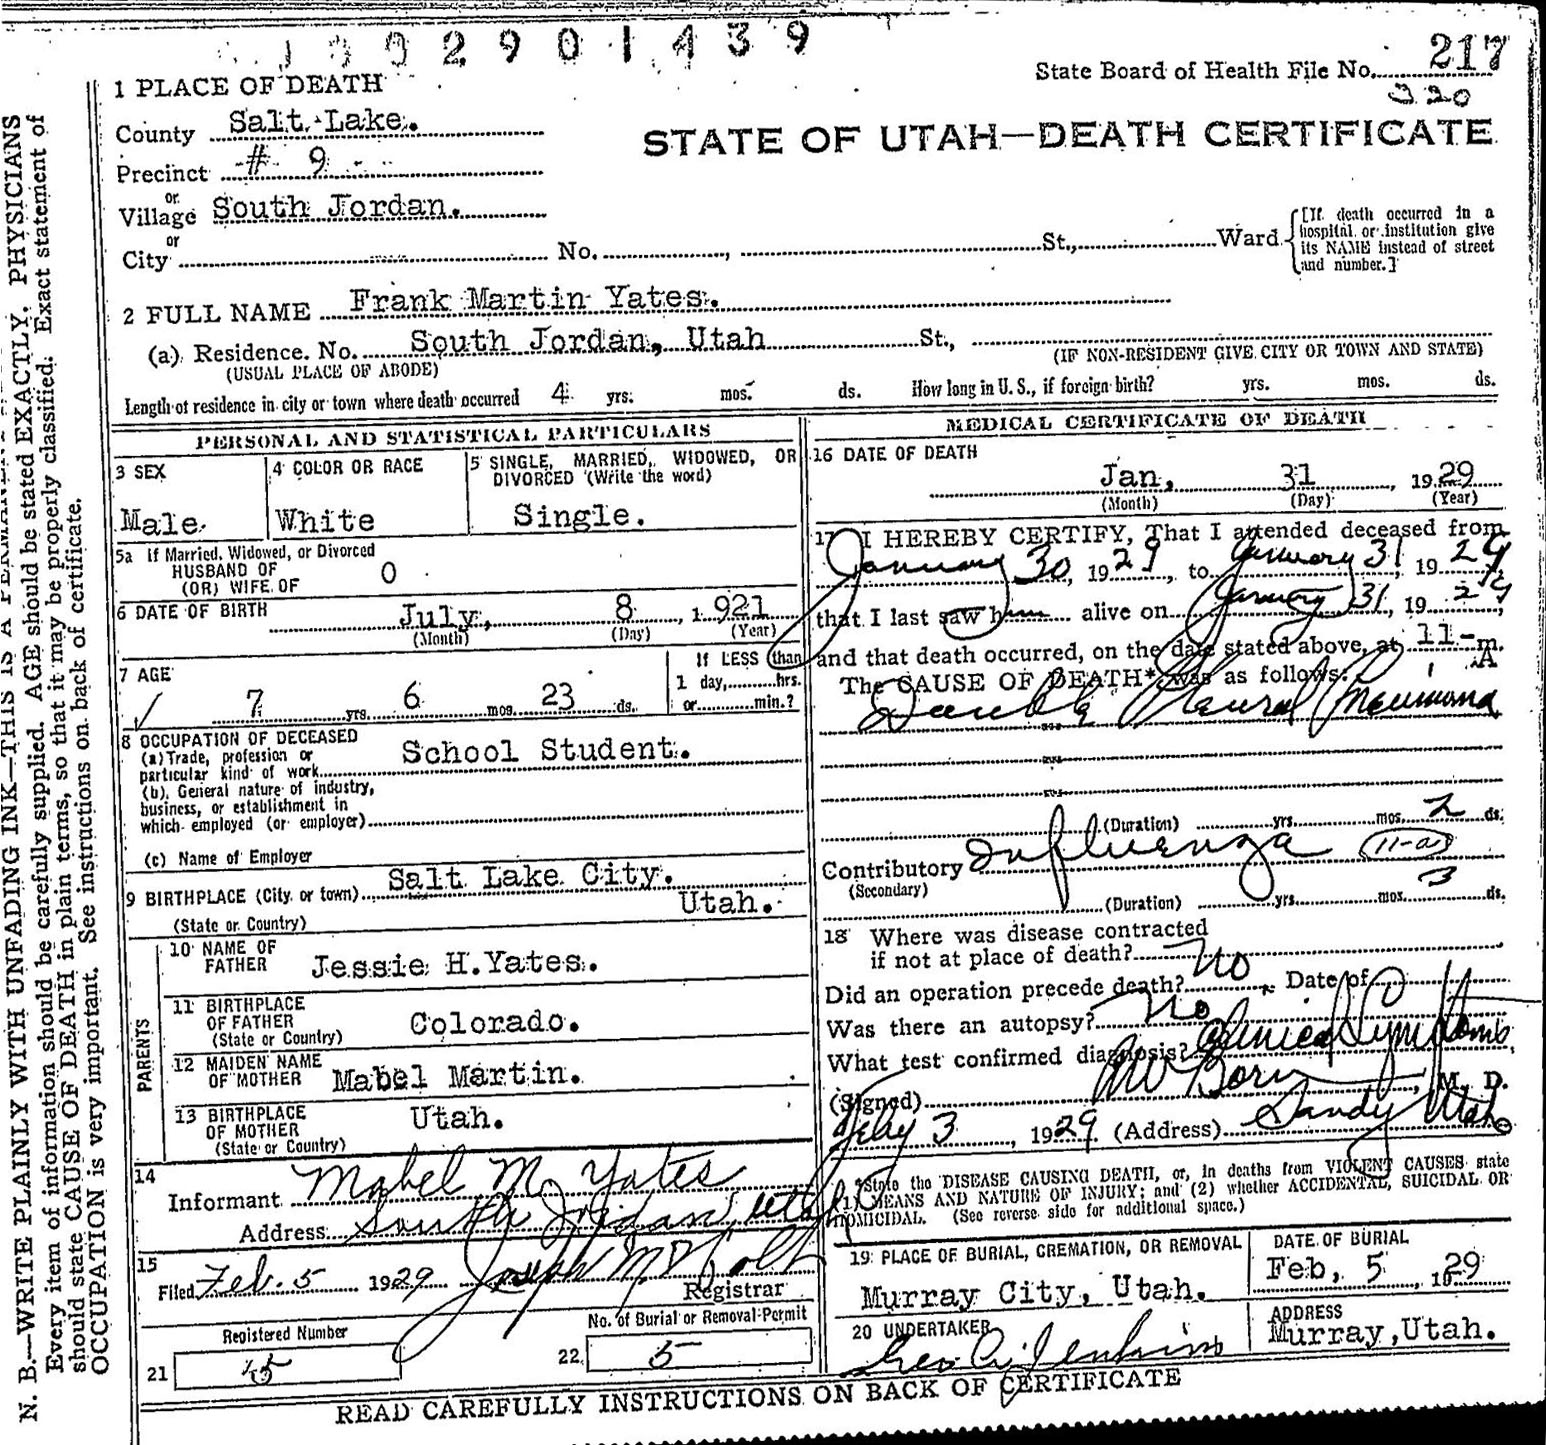 1002901439
State Board of Health File No. 217
320
1 PLACE OF DEATH
County Salt Lake.
STATE OF UTAH—DEATH CERTIFICATE
Precinct # 9
or
Village South Jordan.
or
City No. , St., Ward
[If death occurred in a
hospital or institution give
its NAME instead of street
and number.]
2 FULL NAME Frank Martin Yates.
(a) Residence. No. South Jordan, Utah St.,
(USUAL PLACE OF ABODE)
(IF NON-RESIDENT GIVE CITY OR TOWN AND STATE)
Length of residence in city or town where death occurred 4 yrs. mos. ds. How long in U. S., if foreign birth? yrs. mos. ds.
PERSONAL AND STATISTICAL PARTICULARS
3 SEX
Male.
4 COLOR OR RACE
White
5 SINGLE, MARRIED, WIDOWED, OR
DIVORCED (Write the word)
Single.
5a If Married, Widowed, or Divorced
HUSBAND OF
(OR) WIFE OF 0
6 DATE OF BIRTH July, 8, 1921
(Month) (Day) (Year)
7 AGE
7 yrs. 6 mos. 23 ds.
If LESS than
1 day, hrs.
or min.?
8 OCCUPATION OF DECEASED
(a) Trade, profession or
particular kind of work School Student.
(b) General nature of industry,
business, or establishment in
which employed (or employer)
(c) Name of Employer
9 BIRTHPLACE (City or town) Salt Lake City.
(State or Country) Utah.
PARENTS
10 NAME OF
FATHER Jessie H.Yates.
11 BIRTHPLACE
OF FATHER
(State or Country) Colorado.
12 MAIDEN NAME
OF MOTHER Mabel Martin.
13 BIRTHPLACE
OF MOTHER
(State or Country) Utah.
14
Informant Mabel M. Yates
Address South Jordan, Utah
15
Filed Feb. 5 1929 Joseph M. Holt
Registrar
Registered Number
21 45
No. of Burial or Removal Permit
22 5
MEDICAL CERTIFICATE OF DEATH
16 DATE OF DEATH
Jan, 31, 1929
(Month) (Day) (Year)
17 I HEREBY CERTIFY, That I attended deceased from
January 30, 1929, to January 31, 1929,
that I last saw him alive on January 31, 1929,
and that death occurred, on the date stated above, at 11- A m.
The CAUSE OF DEATH* was as follows:
Double Pleural Pneumonia
(Duration) yrs. mos. 2 ds.
Contributory Influenza (11-a)
(Secondary)
(Duration) yrs. mos. 3 ds.
18 Where was disease contracted
if not at place of death?
Did an operation precede death? No Date of
Was there an autopsy? No
What test confirmed diagnosis? Clinical Symptoms
(Signed) , M. D.
Feby 3, 1929 (Address) Sandy Utah
*State the DISEASE CAUSING DEATH, or, in deaths from VIOLENT CAUSES state
(1) MEANS AND NATURE OF INJURY; and (2) whether ACCIDENTAL, SUICIDAL OR
HOMICIDAL. (See reverse side for additional space.)
19 PLACE OF BURIAL, CREMATION, OR REMOVAL
Murray City, Utah.
DATE OF BURIAL
Feb, 5, 1929
20 UNDERTAKER
Geo A. Jenkins
ADDRESS
Murray,Utah.
READ CAREFULLY INSTRUCTIONS ON BACK OF CERTIFICATE
N. B.—WRITE PLAINLY WITH UNFADING INK—THIS IS A PERMANENT
Every item of information should be carefully supplied. AGE should be stated EXACTLY. PHYSICIANS
should state CAUSE OF DEATH in plain terms, so that it may be properly classified. Exact statement of
OCCUPATION is very important. See instructions on back of certificate.